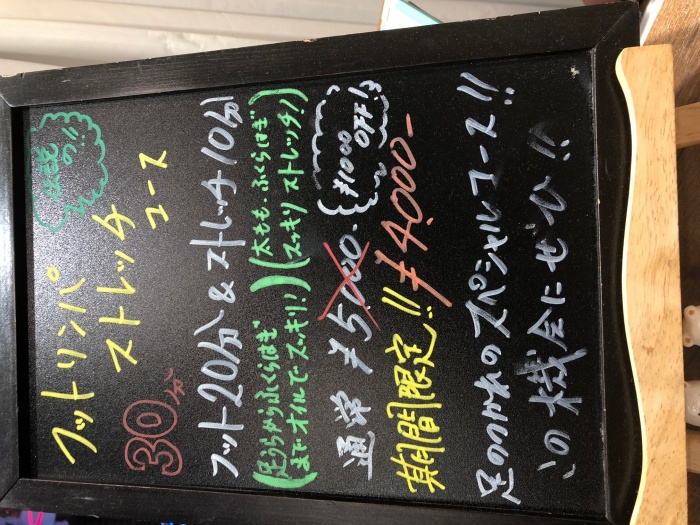 伝説
の!!
フットリンパ
ストレッチ
コース
30分
フット20分 & ストレッチ10分
(足うらからふくらはぎ
までオイルでスッキリ!)
(太もも・ふくらはぎ
スッキリ ストレッチ!)
通常 ¥5,000-
¥1000
OFF!
期間限定!! ¥4,000-
足のつかれのスペシャルコース!!
この機会にぜひ!!